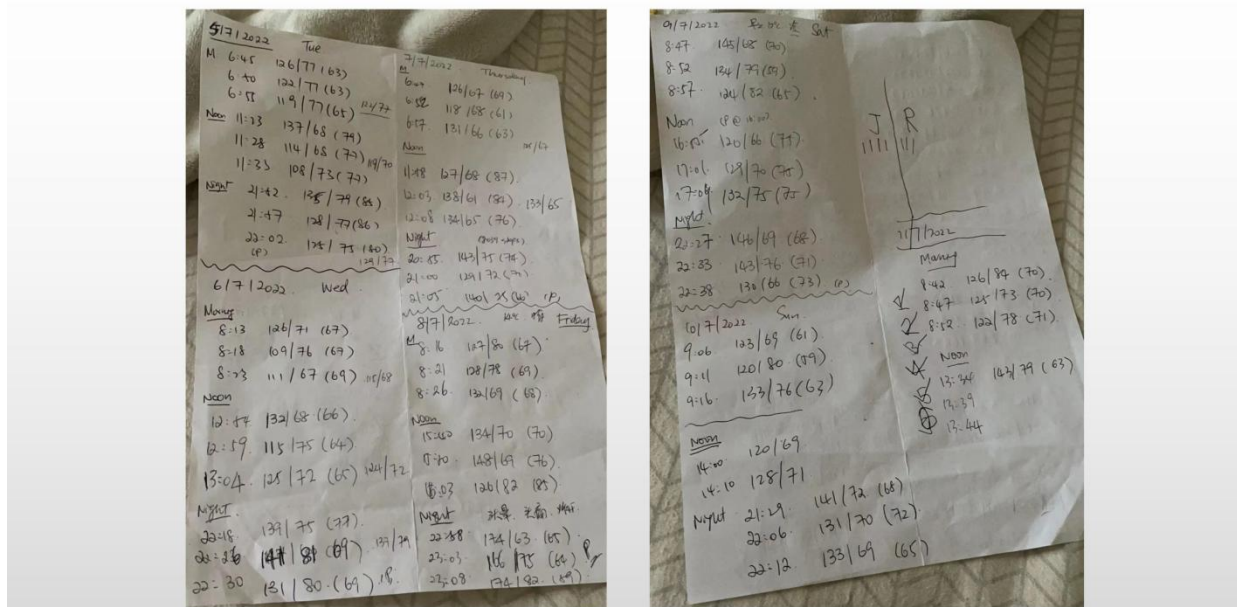 5/7/2022 Tue
M 6:45 126/77 (63)
6:50 122/77 (63)
6:55 119/77 (65) 122/77
Noon 11:23 137/68 (79)
11:28 114/68 (77)
11:33 108/73 (77) 119/70
Night 21:52 135/79 (84)
21:57 128/77 (86)
22:02 125/75 (80)
(P) 129/77
6/7/2022 Wed
8:13 126/71 (67)
8:18 109/76 (67)
8:23 111/67 (69) 115/68
Noon
12:54 132/68 (66)
12:59 115/75 (64)
13:04 125/72 (65) 124/72
Night
22:18 139/75 (77)
22:26 (69)
22:30 131/80 (69)
7/7/2022 Thursday
M
126/67 (69)
6:52 118/68 (61)
6:57 131/66 (63)
Noon
11:58 127/68 (87)
12:03 138/61 (84) 133/65
12:08 134/65 (76)
Night
20:55 143/75 (74)
21:00 129/72
21:05 (P)
8/7/2022 Friday
M 8:16 127/80 (67)
8:21 128/78 (69)
8:26 132/69 (68)
Noon
134/70 (70)
148/69 (76)
126/82 (85)
Night
22:58 134/63 (65)
23:03 /75 (64)
23:08 174/82 (69)
9/7/2022 Sat
8:47 145/68 (70)
8:52 134/79 (69)
8:57 124/82 (65)
Noon
120/66 (77)
17:01 129/70 (75)
17:06 132/75 (75)
Night
22:27 146/69 (68)
22:33 143/76 (71)
22:38 130/66 (73) (P)
10/7/2022 Sun
9:06 123/69 (61)
9:11 120/80 (59)
9:16 133/76 (63)
Noon
14:00 120/69
14:10 128/71
Night 21:29 141/72 (68)
22:06 131/70 (72)
22:12 133/69 (65)
J R
11/7/2022
8:42 126/84 (70)
8:47 125/73 (70)
8:52 122/78 (71)
Noon
13:34 143/79 (63)
13:39
13:44